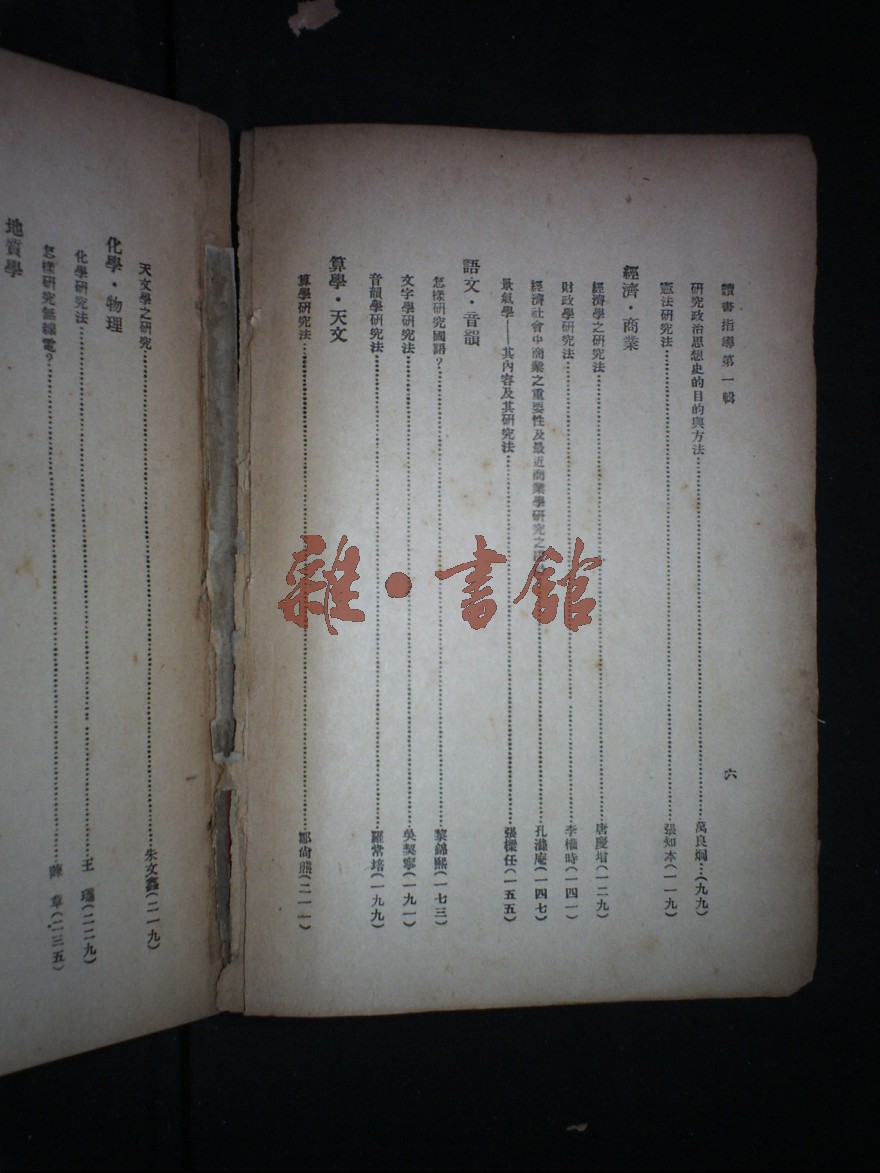 讀書指導第一輯
六
研究政治思想史的目的與方法……萬良炯…(九九)
憲法研究法……張知本(一一九)
經濟·商業
經濟學之研究法……唐慶增(一二九)
財政學研究法……李權時(一四一)
經濟社會中商業之重要性及最近商業學研究之……孔滌庵(一四七)
景氣學——其內容及其研究法……張樑任(一五五)
語文·音韻
怎樣研究國語?……黎錦熙(一七三)
文字學研究法……吳契寧(一九一)
音韻學研究法……羅常培(一九九)
算學·天文
算學研究法……鄒尙熊(二一一)
天文學之研究……朱文鑫(二一九)
化學·物理
化學研究法……王璡(二二九)
怎樣研究無線電?……陳章(二三五)
地質學
雜·書館